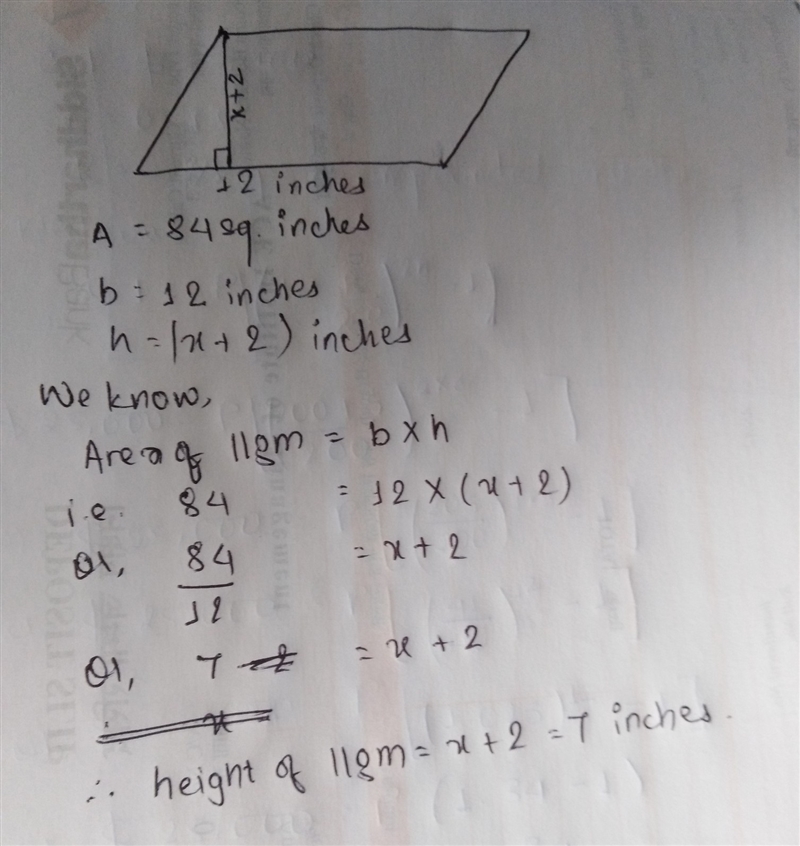 x+2
12 inches
A = 84 sq. inches
b = 12 inches
h = (x + 2) inches
We know,
Area of llgm = b × h
i.e. 84 = 12 × (x + 2)
Or, 84/12 = x + 2
Or, 7 = x + 2
∴ height of llgm = x + 2 = 7 inches.